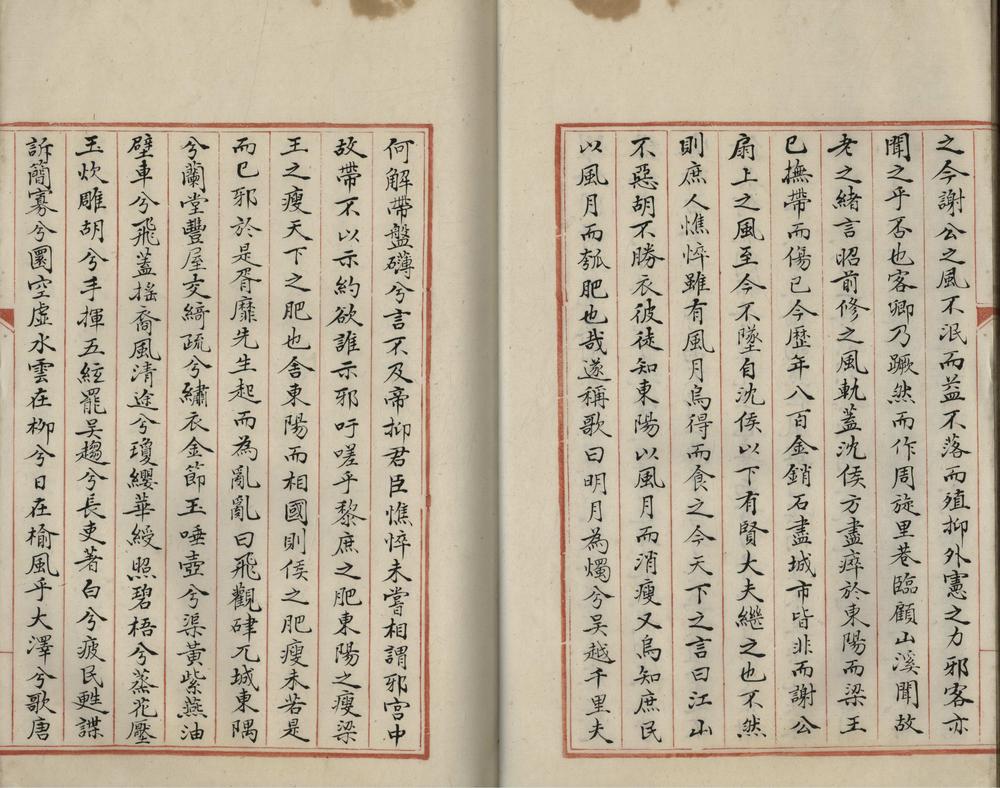 之今謝公之風不泯而益不落而殖抑外憲之力邪客亦
聞之乎否也客卿乃蹶然而作周旋里巷臨顧山溪聞故
老之緒言昭前修之風軌蓋沈侯方盡瘁於東陽而梁王
已撫帶而傷已今歷年八百金銷石盡城市皆非而謝公
扇上之風至今不墜自沈侯以下有賢大夫繼之也不然
則庶人憔悴雖有風月烏得而食之今天下之言曰江山
不惡胡不勝衣彼徒知東陽以風月而消瘦又烏知庶民
以風月而瓠肥也哉遂稱歌曰明月為燭兮吴越千里夫
何解帶盤礴兮言不及帝抑君臣憔悴未嘗相謂邪宫中
故帶不以示約欲誰示邪吁嗟乎黎庶之肥東陽之瘦梁
王之瘦天下之肥也舍東陽而相國則侯之肥瘦未若是
而已邪於是胥靡先生起而為亂亂曰飛觀硉兀城東隅
兮蘭堂豐屋交綺疏兮繡衣金節玉唾壺兮渠黃紫燕油
壁車兮飛蓋摇裔風清途兮瓊纓華綬照碧梧兮蒸花壓
玉炊雕胡兮手揮五絃罷吴趨兮長吏著白兮疲民甦諜
訴簡寡兮圜空虛水雲在柳兮日在榆風乎大澤兮歌唐